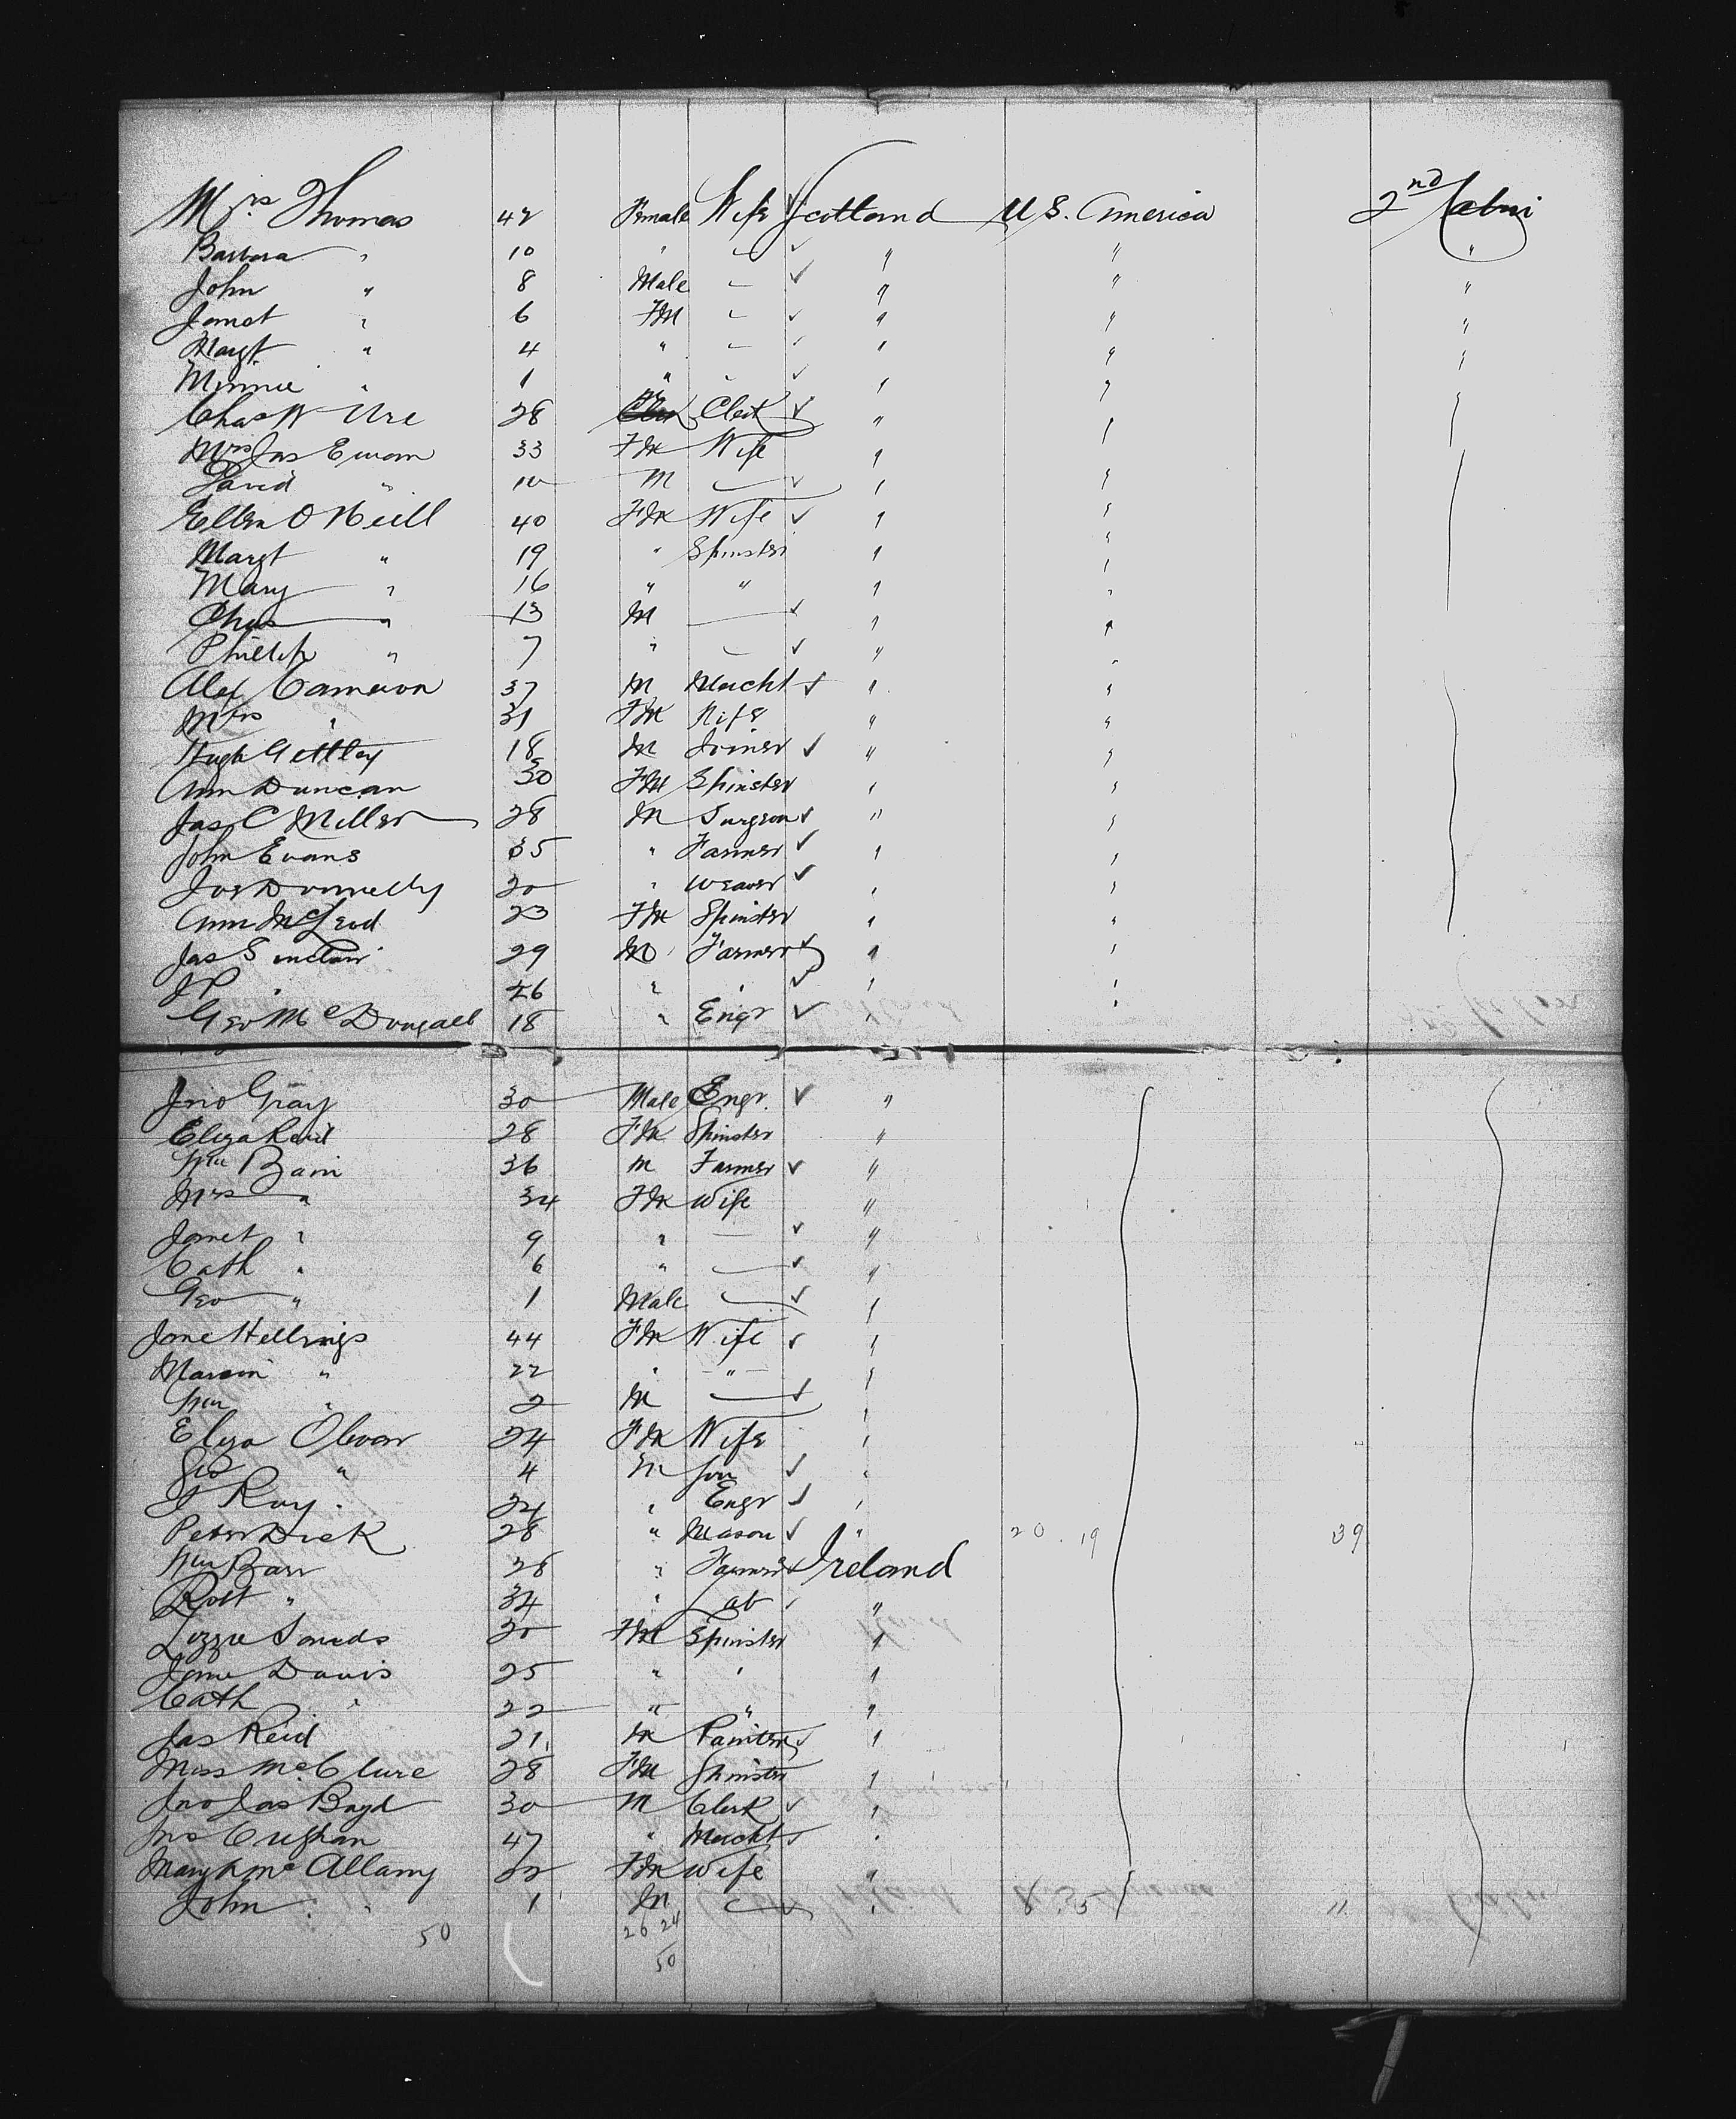 Mrs Thomas 42 Female Wife Scotland U S. America 2nd Cabin
Barbara " 10 " " " "
John " 8 Male " " "
Janet " 6 FM " " "
Margt " 4 " " " "
Minnie " 1 " " " "
Chas W Ure 28 M Clerk " "
Mrs Jas Ewan 33 FM Wife " "
David " 10 M " "
Ellen O Neill 40 FM Wife " "
Margt " 19 " Spinster " "
Mary " 16 " " " "
Chas " 13 M " "
Phillip " 7 " " "
Alex Cameron 37 M Mercht " "
Mrs " 31 FM Wife " "
Hugh Gettley 18 M Joiner " "
Ann Duncan 30 FM Spinster " "
Jas C Miller 28 M Surgeon " "
John Evans 35 " Farmer " "
Jos Donnelly 20 " Weaver " "
Ann McLeod 23 FM Spinster " "
Jas Sinclair 29 M Farmer " "
J P " 26 " " " "
Geo McDougall 18 " Engr " "
Jno Gray 30 Male Engr. "
Eliza Reid 28 FM Spinster "
Wm Bain 36 M Farmer "
Mrs " 34 FM Wife "
Janet " 9 " "
Cath " 6 " "
Geo " 1 Male "
Jane Hellings 44 FM Wife "
" 22 " " "
Wm " 2 M "
Eliza 24 FM Wife "
Geo " 4 M Son "
J Roy. 24 " Engr "
Peter Dick 28 " Mason " 20. 19 39
Wm Barr 28 " Farmer Ireland
Robt " 34 " Lab "
Lizzie 30 FM Spinster "
Jane Davis 25 " " "
Cath " 22 " " "
Jas Reid 21 M Painter "
Miss McClure 28 FM Spinster "
Jno Jas Boyd 30 M Clerk "
Jno 47 " Mercht "
Mary A Mc 22 FM Wife "
John " 1 M " 11
50 26 24
50